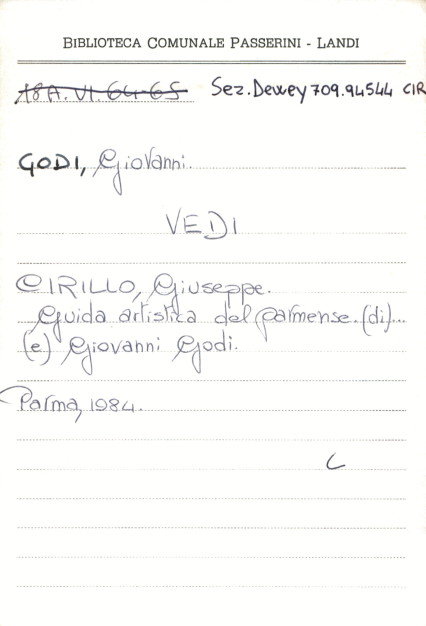 BIBLIOTECA COMUNALE PASSERINI - LANDI
18A.VI.64-65 Sez. Dewey 709.94544 CIR
GODI, Giovanni.
VEDI
CIRILLO, Giuseppe.
Guida artistica del parmense. (di)...
(e) Giovanni Godi.
Parma, 1984.
C